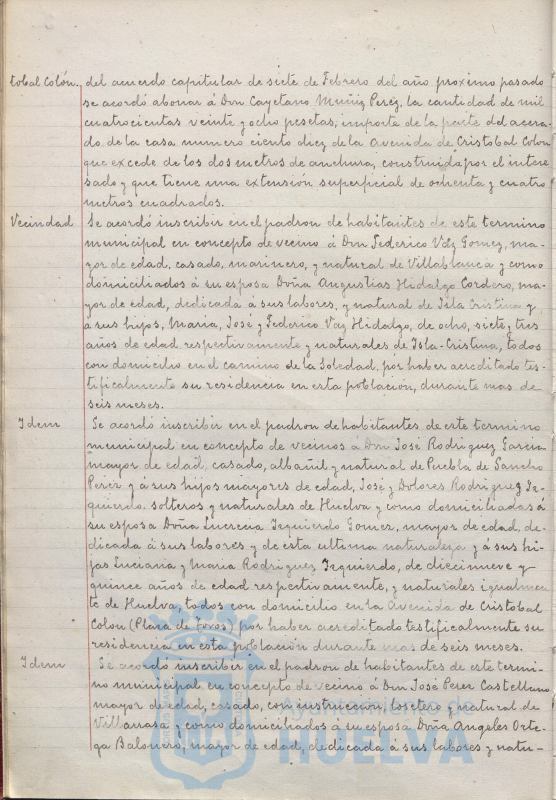 tobal Colón. del acuerdo capitular de siete de Febrero del año proximo pasado
se acordó abonar á Don Cayetano Muñiz Perez, la cantidad de mil
cuatrocientas veinte y ocho pesetas, importe de la parte del acera-
do de la casa numero ciento diez de la Avenida de Cristobal Colon
que excede de los dos metros de anchura, construida por el intere
sado y que tiene una extensión superficial de ochenta y cuatro
metros cuadrados.
Vecindad Se acordó inscribir en el padron de habitantes de este termino
municipal en concepto de vecino á Don Federico Vaz Gomez, ma-
yor de edad, casado, marinero, y natural de Villablanca y como
domiciliados á su esposa Doña Angustias Hidalgo Cordero, ma-
yor de edad, dedicada á sus labores, y natural de Isla Cristina y
á sus hijos, Maria, José y Federico Vaz Hidalgo, de ocho, siete y tres
años de edad respectivamente y naturales de Isla-Cristina, todos
con domicilio en el camino de la Soledad, por haber acreditado tes-
tificalmente su residencia en esta población, durante mas de
seis meses.
Idem Se acordó inscribir en el padron de habitantes de este termino
municipal en concepto de vecinos á Don José Rodriguez Garcia
mayor de edad, casado, albañil y natural de Puebla de Sancho
Perez y á sus hijos mayores de edad, José y Dolores Rodriguez Iz-
quierdo, solteros y naturales de Huelva y como domiciliadas á
su esposa Doña Lucrecia Izquierdo Gomez, mayor de edad, de-
dicada á sus labores y de esta ultima naturaleza y á sus hi-
jas Luciana y Maria Rodriguez Izquierdo, de diecinueve y
quince años de edad respectivamente, y naturales igualmen
te de Huelva, todos con domicilio en la Avenida de Cristobal
Colon (Plaza de Toros), por haber acreditado testificalmente su
residencia en esta población durante mas de seis meses.
Idem Se acordó inscribir en el padron de habitantes de este termi-
no municipal en concepto de vecino á Don José Perez Castellano
mayor de edad, casado, con instruccion, y natural de
Villarrasa y como domiciliados á su esposa Doña Angeles Orte-
ga Balonero, mayor de edad, dedicada á sus labores y natu-
Ayuntamiento de
HUELVA